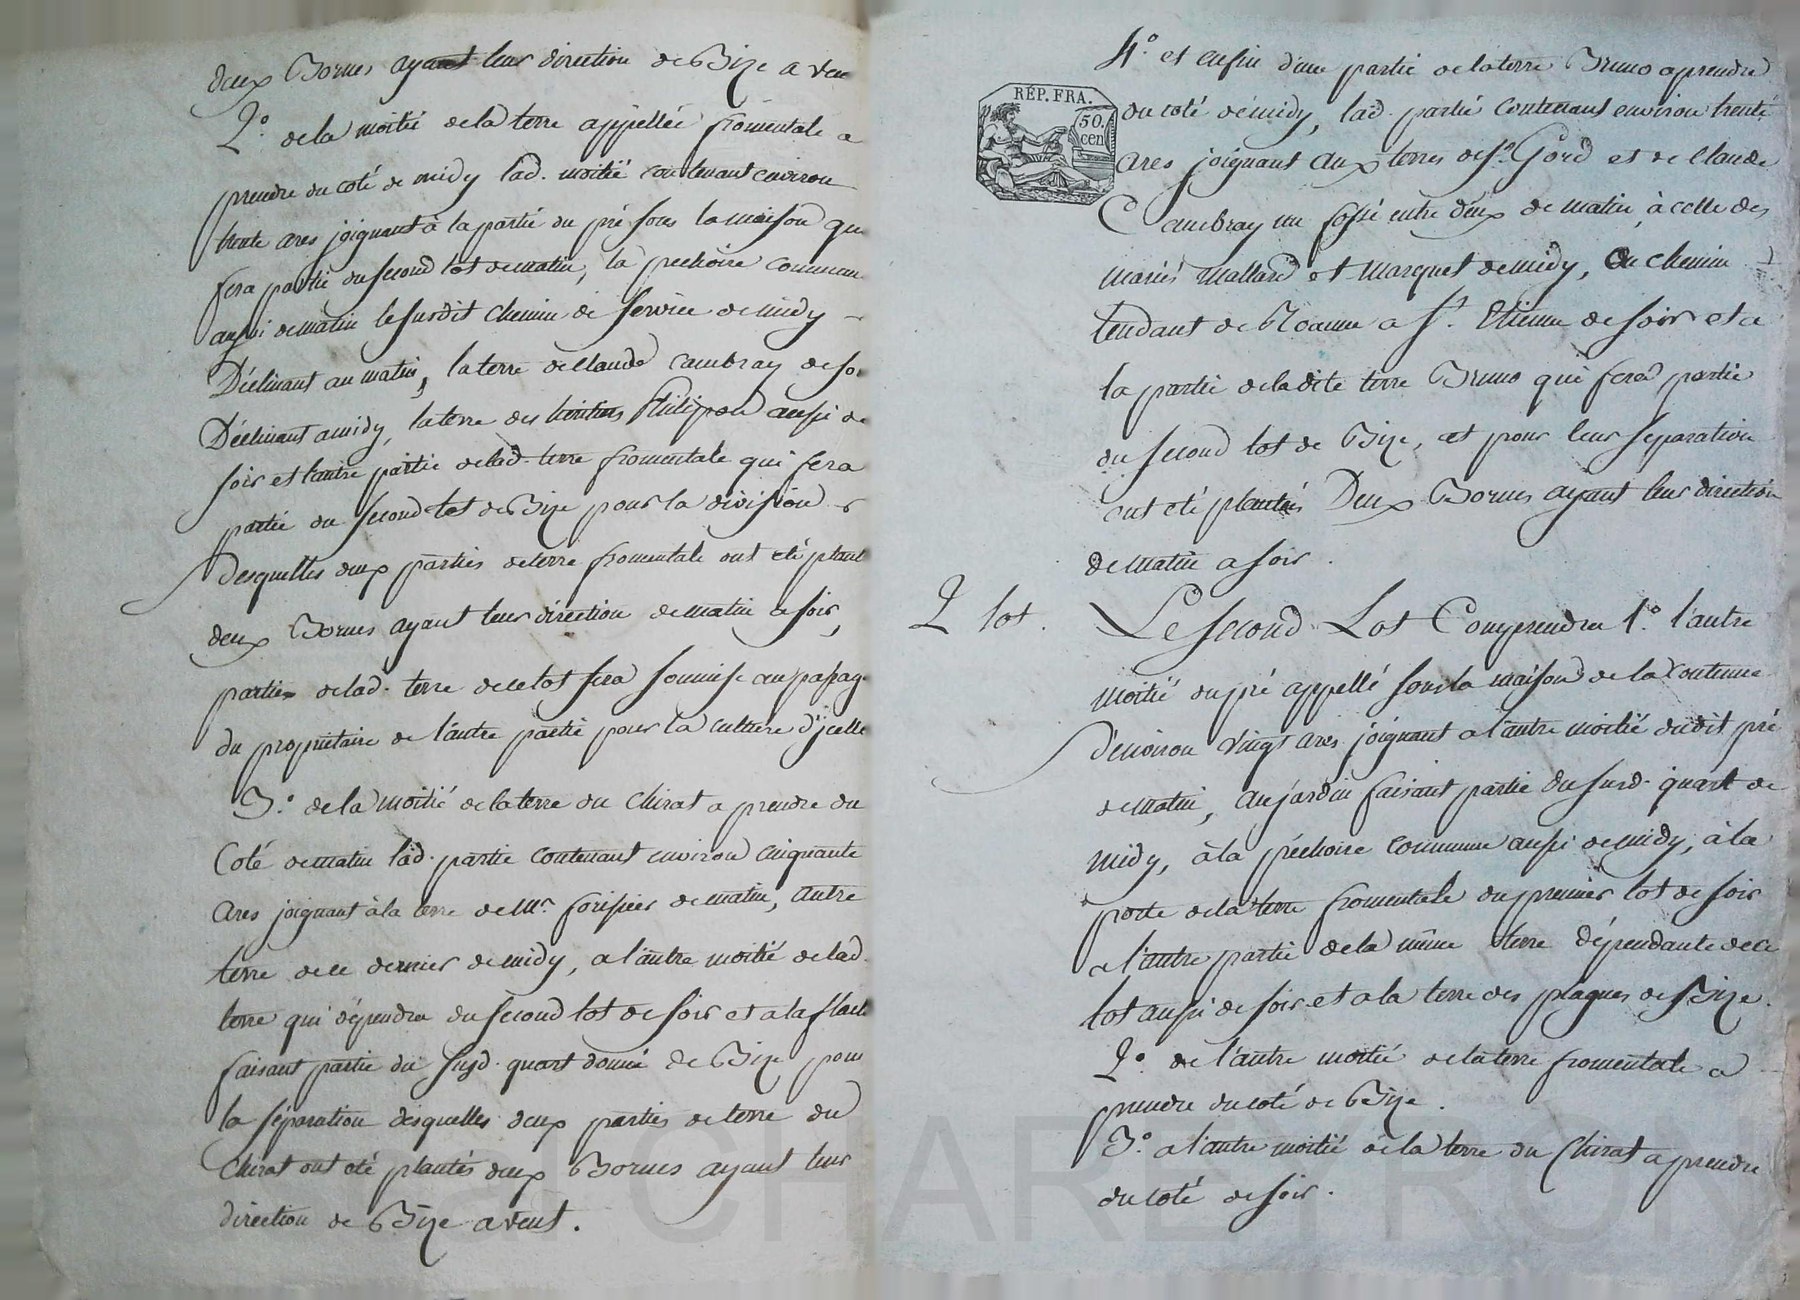 deux Bornes ayant leur direction de Bize a ven
2.° de la moitié de la terre appellée fromentale a
prendre du coté de midy lad. moitié contenant environ
trente ares joignant à la partie du pré sous la maison qu
fera partie du second lot de matin, la pechoire commun
aussi de matin le susdit chemin de service de midy
Déclinant au matin, la terre de Claude Cambray de so
Déclinant a midy, la terre des héritiers Philipon aussi de
soir et l'autre partie de lad. terre fromentale qui fera
partie du second lot de Bize pour la division
desquelles deux parties de terre fromentale ont été plant
deux Bornes ayant leur direction de matin a soir,
partie de lad. terre de ce lot sera soumise au passag
du propriétaire de l'autre partie pour la culture d'jcelle
3.° de la moitié de la terre du Chirat a prendre du
Coté de matin lad. partie contenant environ cinquante
ares joignant à la terre de Mr. de matin, autre
terre de ce dernier de midy, a l'autre moitié de lad.
terre qui dépendra du second lot de soir et a la
faisant partie du susd. quart donné de Bize pour
la séparation desquelles deux parties de terre du
Chirat ont été plantés deux Bornes ayant leur
direction de Bize a vent.
4.° et enfin d'une partie de la terre Bruno a prendre
RÉP. FRA.
50. cen
du coté de midy, lad. partie contenant environ trente
ares joignant aux terres de Sr. Goré et de Claude
Cambray un fossé entre deux de matin, à celle des
mariés Mallard et Marquet de midy, Au chemin
tendant de Roanne a St. Etienne de soir et a
la partie de ladite terre Bruno qui fera partie
du second lot de Bize, et pour leur separation
ont été plantés Deux Bornes ayant leur direction
de matin a soir.
2 lot.
Le second Lot Comprendra 1.° l'autre
moitié du pré appellé sous la maison de la Contenue
d'environ vingt ares joignant a l'autre moitié dudit pré
de matin, au jardin faisant partie du susd. quart de
midy, à la pèchoire commune aussi de midy, à la
partie de la terre fromentale du premier lot de soir
a l'autre partie de la même terre dépendante de ce
lot aussi de soir et a la terre des plagnes de Bize.
2.° de l'autre moitié de la terre fromentale a
prendre du coté de Bize.
3.° a l'autre moitié de la terre du Chirat a prendre
du coté de soir.
CHAREYRON